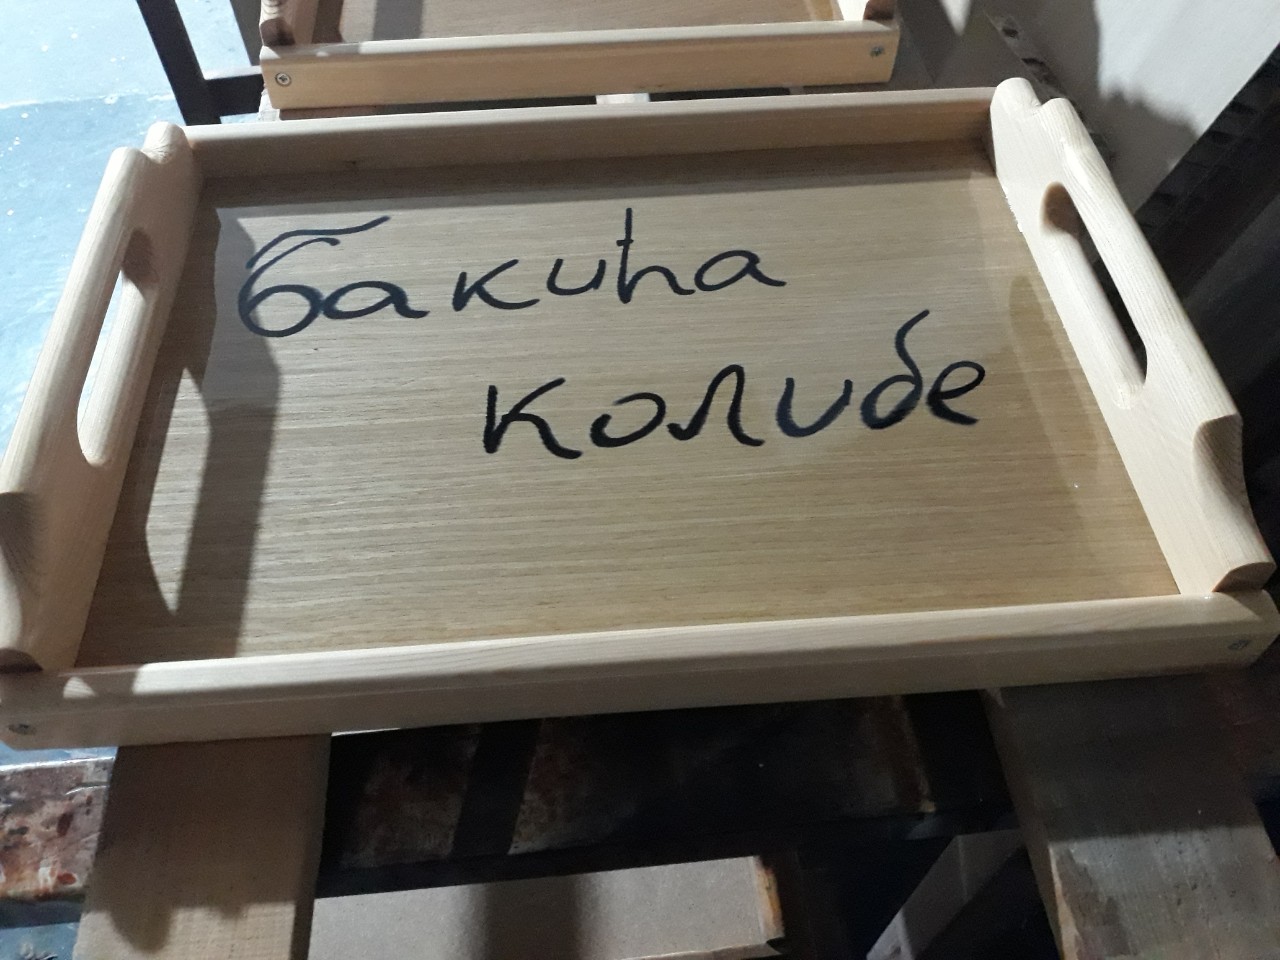 бакића
колибе